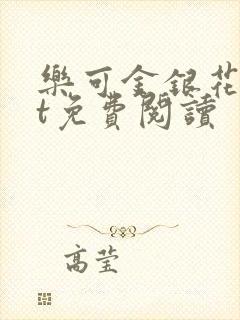 樂可金銀花
t免費閱讀
高莹